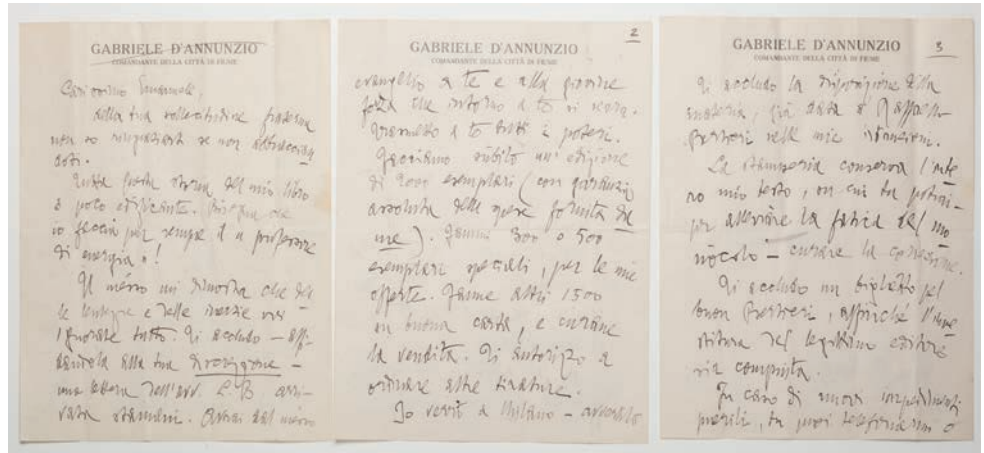 GABRIELE D'ANNUNZIO
COMANDANTE DELLA CITTÀ DI FIUME
Carissimo Emanuele,
della tua sollecitudine fraterna
non so ringraziarti se non abbraccian
doti.
Tutta questa storia del mio libro
è poco edificante. Bisogna che
io faccia pur sempre il « professore
di energia »!
Il messo mi dimostra che del
le lentezze e delle inezie voi
ignorate tutto. Ti accludo – affi-
dandola alla tua discrezione –
una lettera dell'avv. L. B. arri-
vata stamani. Avrai dal messo
2
GABRIELE D'ANNUNZIO
COMANDANTE DELLA CITTÀ DI FIUME
a te e alla giovine
forza che intorno a te si
Trasmetto a te tutti i poteri.
Facciamo subito un'edizione
di 2000 esemplari (con garanzia
assoluta delle spese fornita da
me). Fammi 300 o 500
esemplari speciali, per le mie
offerte. Fanne altri 1500
in buona carta, e curane
la vendita. Ti autorizzo a
ordinare altre tirature.
Io verrò a Milano –
3
GABRIELE D'ANNUNZIO
COMANDANTE DELLA CITTÀ DI FIUME
Ti accludo la disposizione della
materia, già data a
nelle mie istruzioni.
La stamperia conserva l'inte
ro mio testo, su cui tu potrai –
per alleviare la fatica del mo
nocolo – curare la correzione.
Ti accludo un biglietto pel
buon affinché l'inve
stitura del legittimo editore
sia compiuta.
In caso di nuovi impedimenti
puerili, tu puoi telefonarmi o